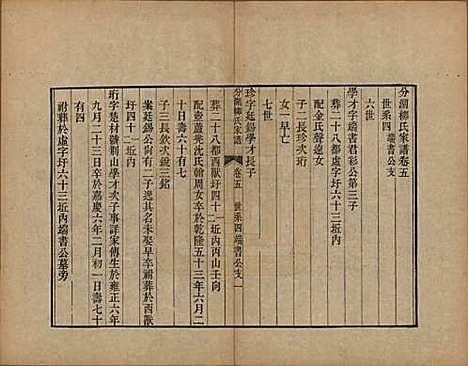 分湖柳氏家譜卷五
世系四端書公支
六世
學才字端書君彩公第三子
葬二十八都南虛字圩六十三坵內
配金氏聲遠女
子二長珍次珩
女一早亡
七世
珍字廷錫學才長子
分湖柳氏家譜 卷五 世系四端書公支 一
葬二十八都西獸圩四十二坵內山向
配壺蘆兜沈氏翰周女卒於乾隆五十三年六月二
十日壽六十有七
子三長欽次銳三銘
案廷錫公尚有二子逸其名未娶早卒祔葬於西獸
圩四十一坵內
珩字楚材號朝山學才次子事詳家傳生於雍正六年
九月二十三日卒於嘉慶六年二月初一日壽七十
有四
祔葬於虛字圩六十三坵內端書公墓旁